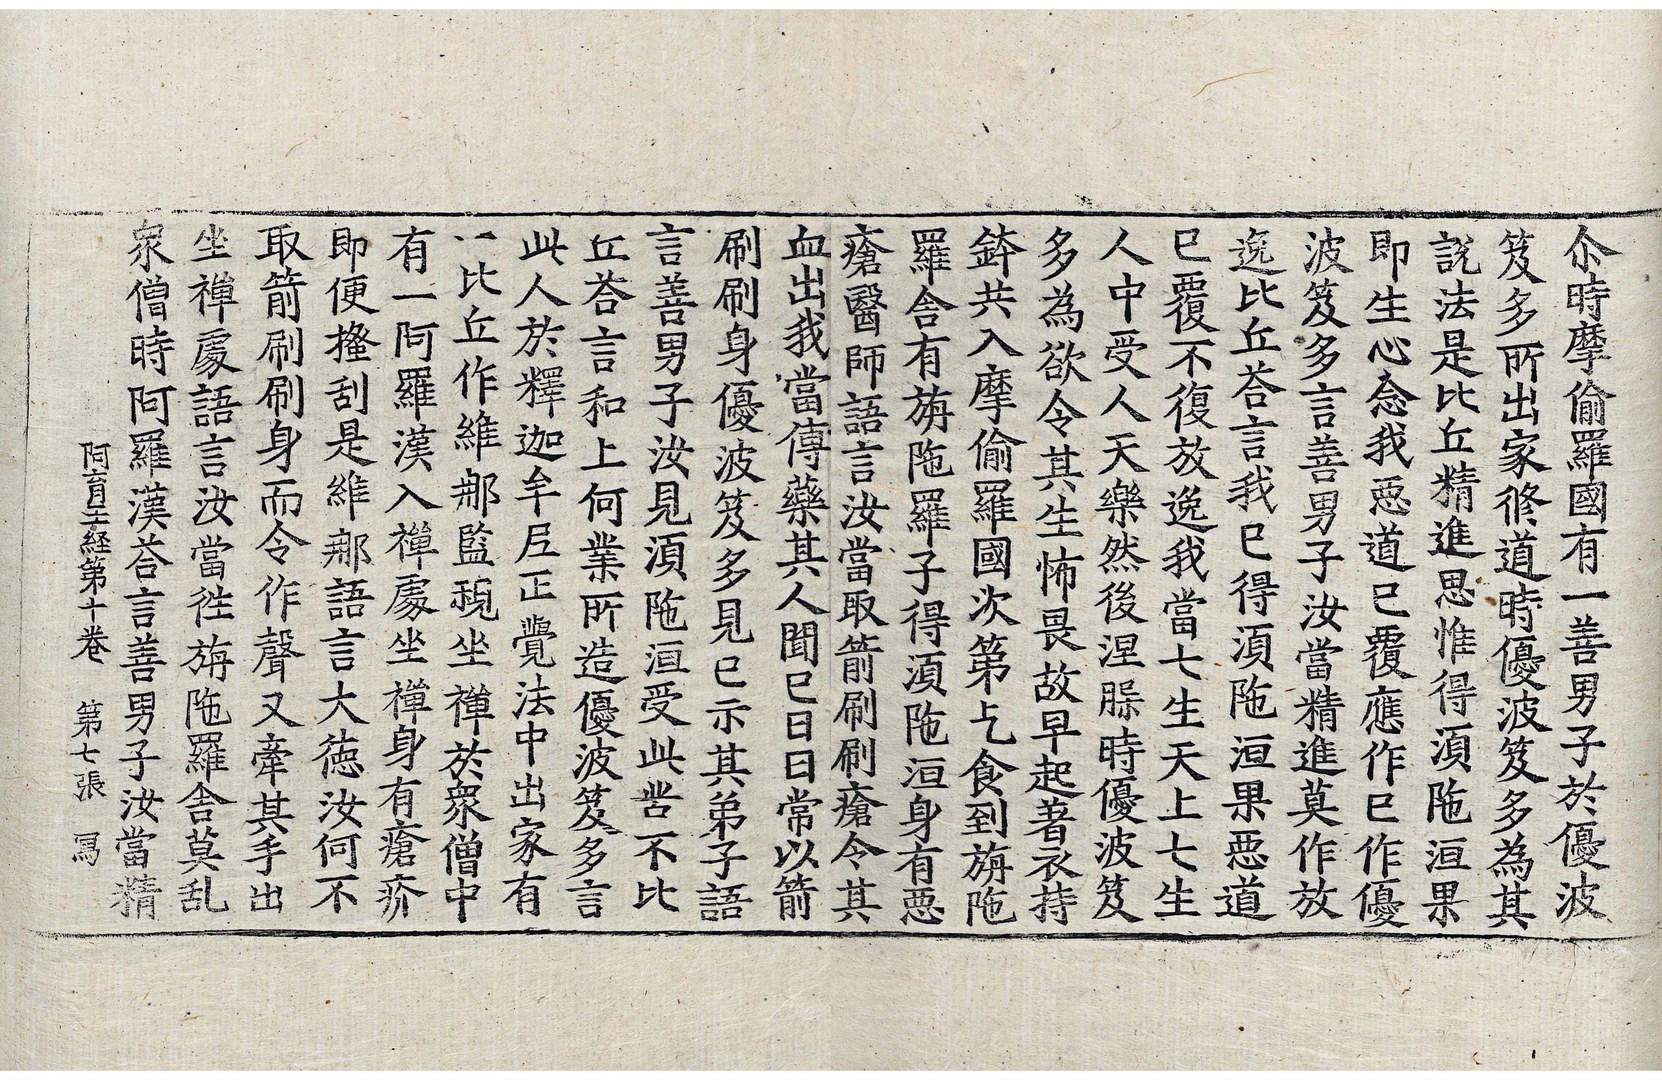 尒時摩偷羅國有一善男子於優波
笈多所出家修道時優波笈多為其
說法是比丘精進思惟得湏陁洹果
即生心念我惡道已覆應作已作優
波笈多言善男子汝當精進莫作放
逸比丘荅言我已得湏陁洹果惡道
已覆不復放逸我當七生天上七生
人中受人天樂然後涅槃時優波笈
多為欲令其生怖畏故早起著衣持
鉢共入摩偷羅國次第乞食到旃陁
羅舍有旃陁羅子得湏陁洹身有惡
瘡醫師語言汝當取箭刷刷瘡令其
血出我當傅藥其人聞已日日常以箭
刷刷身優波笈多見已示其弟子語
言善男子汝見湏陁洹受此苦不比
丘荅言和上何業所造優波笈多言
此人於釋迦牟尼正覺法中出家有
一比丘作維那監視坐禪於衆僧中
有一阿羅漢入禪處坐禪身有瘡疥
即便搔刮是維那語言大德汝何不
取箭刷刷身而令作聲又牽其手出
坐禪處語言汝當往旃陁羅舍莫乱
衆僧時阿羅漢荅言善男子汝當精
阿育王經第十卷 第七張 冩